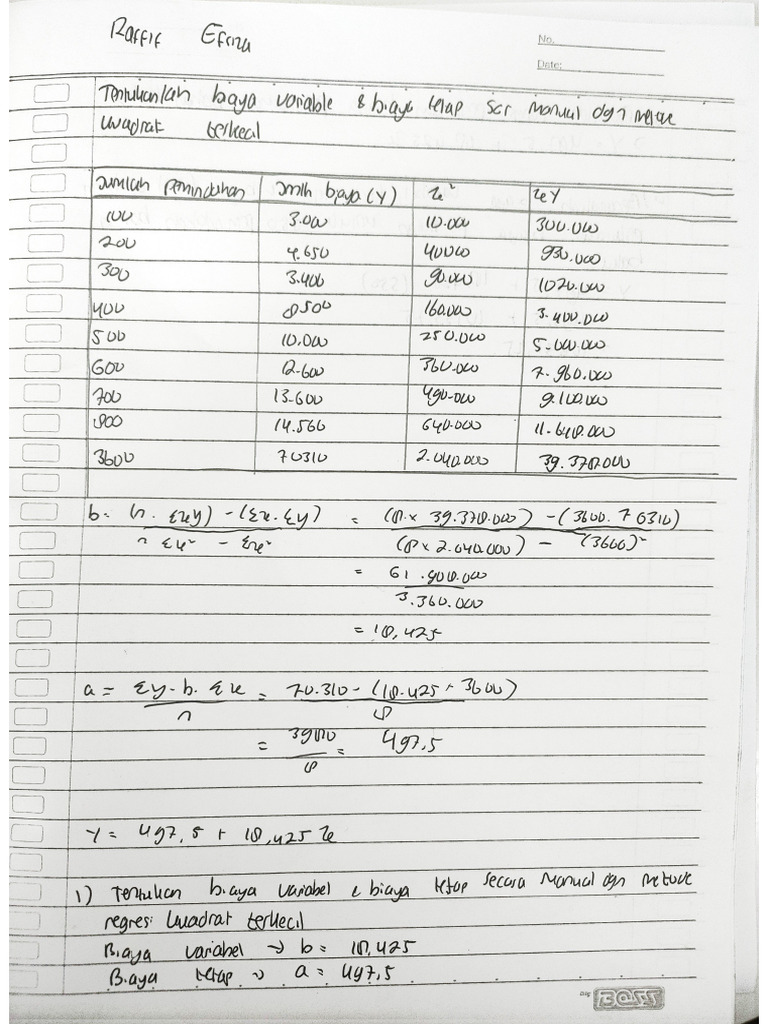 Raffif Efriza
No.
Date:
Tentukanlah biaya variable & biaya tetap scr manual dgn metode
kuadrat terkecil
Jumlah Pemindahan Jmlh biaya (Y) x² xY
100 3.000 10.000 300.000
200 4.650 40000 930.000
300 3.400 90.000 1020.000
400 8500 160.000 3.400.000
500 10.000 250.000 5.000.000
600 12.600 360.000 7.960.000
700 13.600 490.000 9.100.000
800 14.560 640.000 11.648.000
3600 70310 2.040.000 39.378.000
b = (n. Σxy) - (Σx. Σy) = (8 x 39.378.000) - (3600. 70310)
n Σx² - Σx² (8 x 2.040.000) - (3600)²
= 61.908.000
3.360.000
= 18,425
a = Σy - b. Σx = 70.310 - (18.425 + 3600)
n 8
= 3980 = 497,5
8
Y = 497,5 + 18,425 x
1) Tentukan biaya variabel & biaya tetap secara manual dgn metode
regresi kuadrat terkecil
Biaya variabel → b = 18,425
Biaya tetap → a = 497,5
BOSS